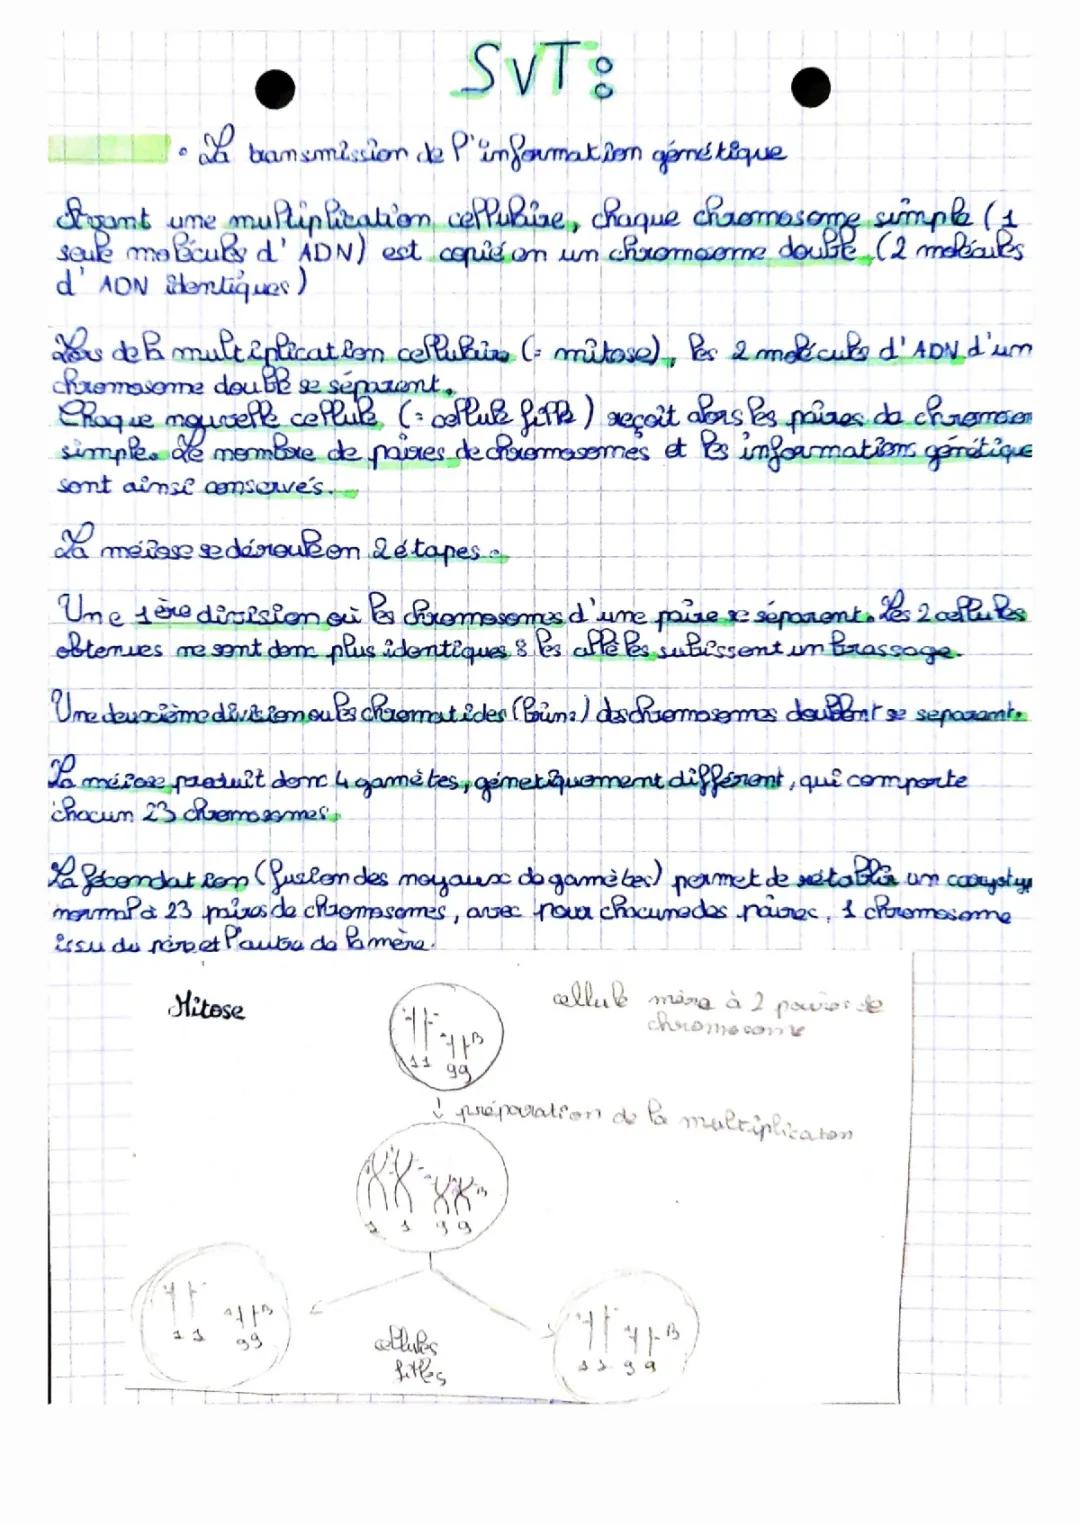 SVT :
• La transmission de l'information génétique
Avant une multiplication cellulaire, chaque chromosome simple (1
seule molécule d'ADN) est copié en un chromosome double (2 molécules
d'ADN identiques)
Lors de la multiplication cellulaire (= mitose), les 2 molécules d'ADN d'un
chromosome double se séparent.
Chaque nouvelle cellule (= cellule fille) reçoit alors les paires de chromosom
simple. Le nombre de paires de chromosomes et les informations génétique
sont ainsi conservés.
La méiose se déroule en 2 étapes.
Une 1ère division où les chromosomes d'une paire se séparent. Les 2 cellules
obtenues ne sont donc plus identiques : les allèles subissent un brassage.
Une deuxième division ou les chromatides (brins) des chromosomes doublent se séparent.
La méiose produit donc 4 gamètes, génétiquement différent, qui comporte
chacun 23 chromosomes.
La fécondation (fusion des noyaux de gamètes) permet de rétablir un caryotype
normal à 23 paires de chromosomes, avec pour chacune des paires, 1 chromosome
issu du père et l'autre de la mère.
Mitose
cellule mère à 2 paires de
chromosome
A B
1 1 9 9
↓ préparation de la multiplicaton
B
1 1 9 9
A B
1 1 9 9
cellules
filles
A B
1 1 9 9